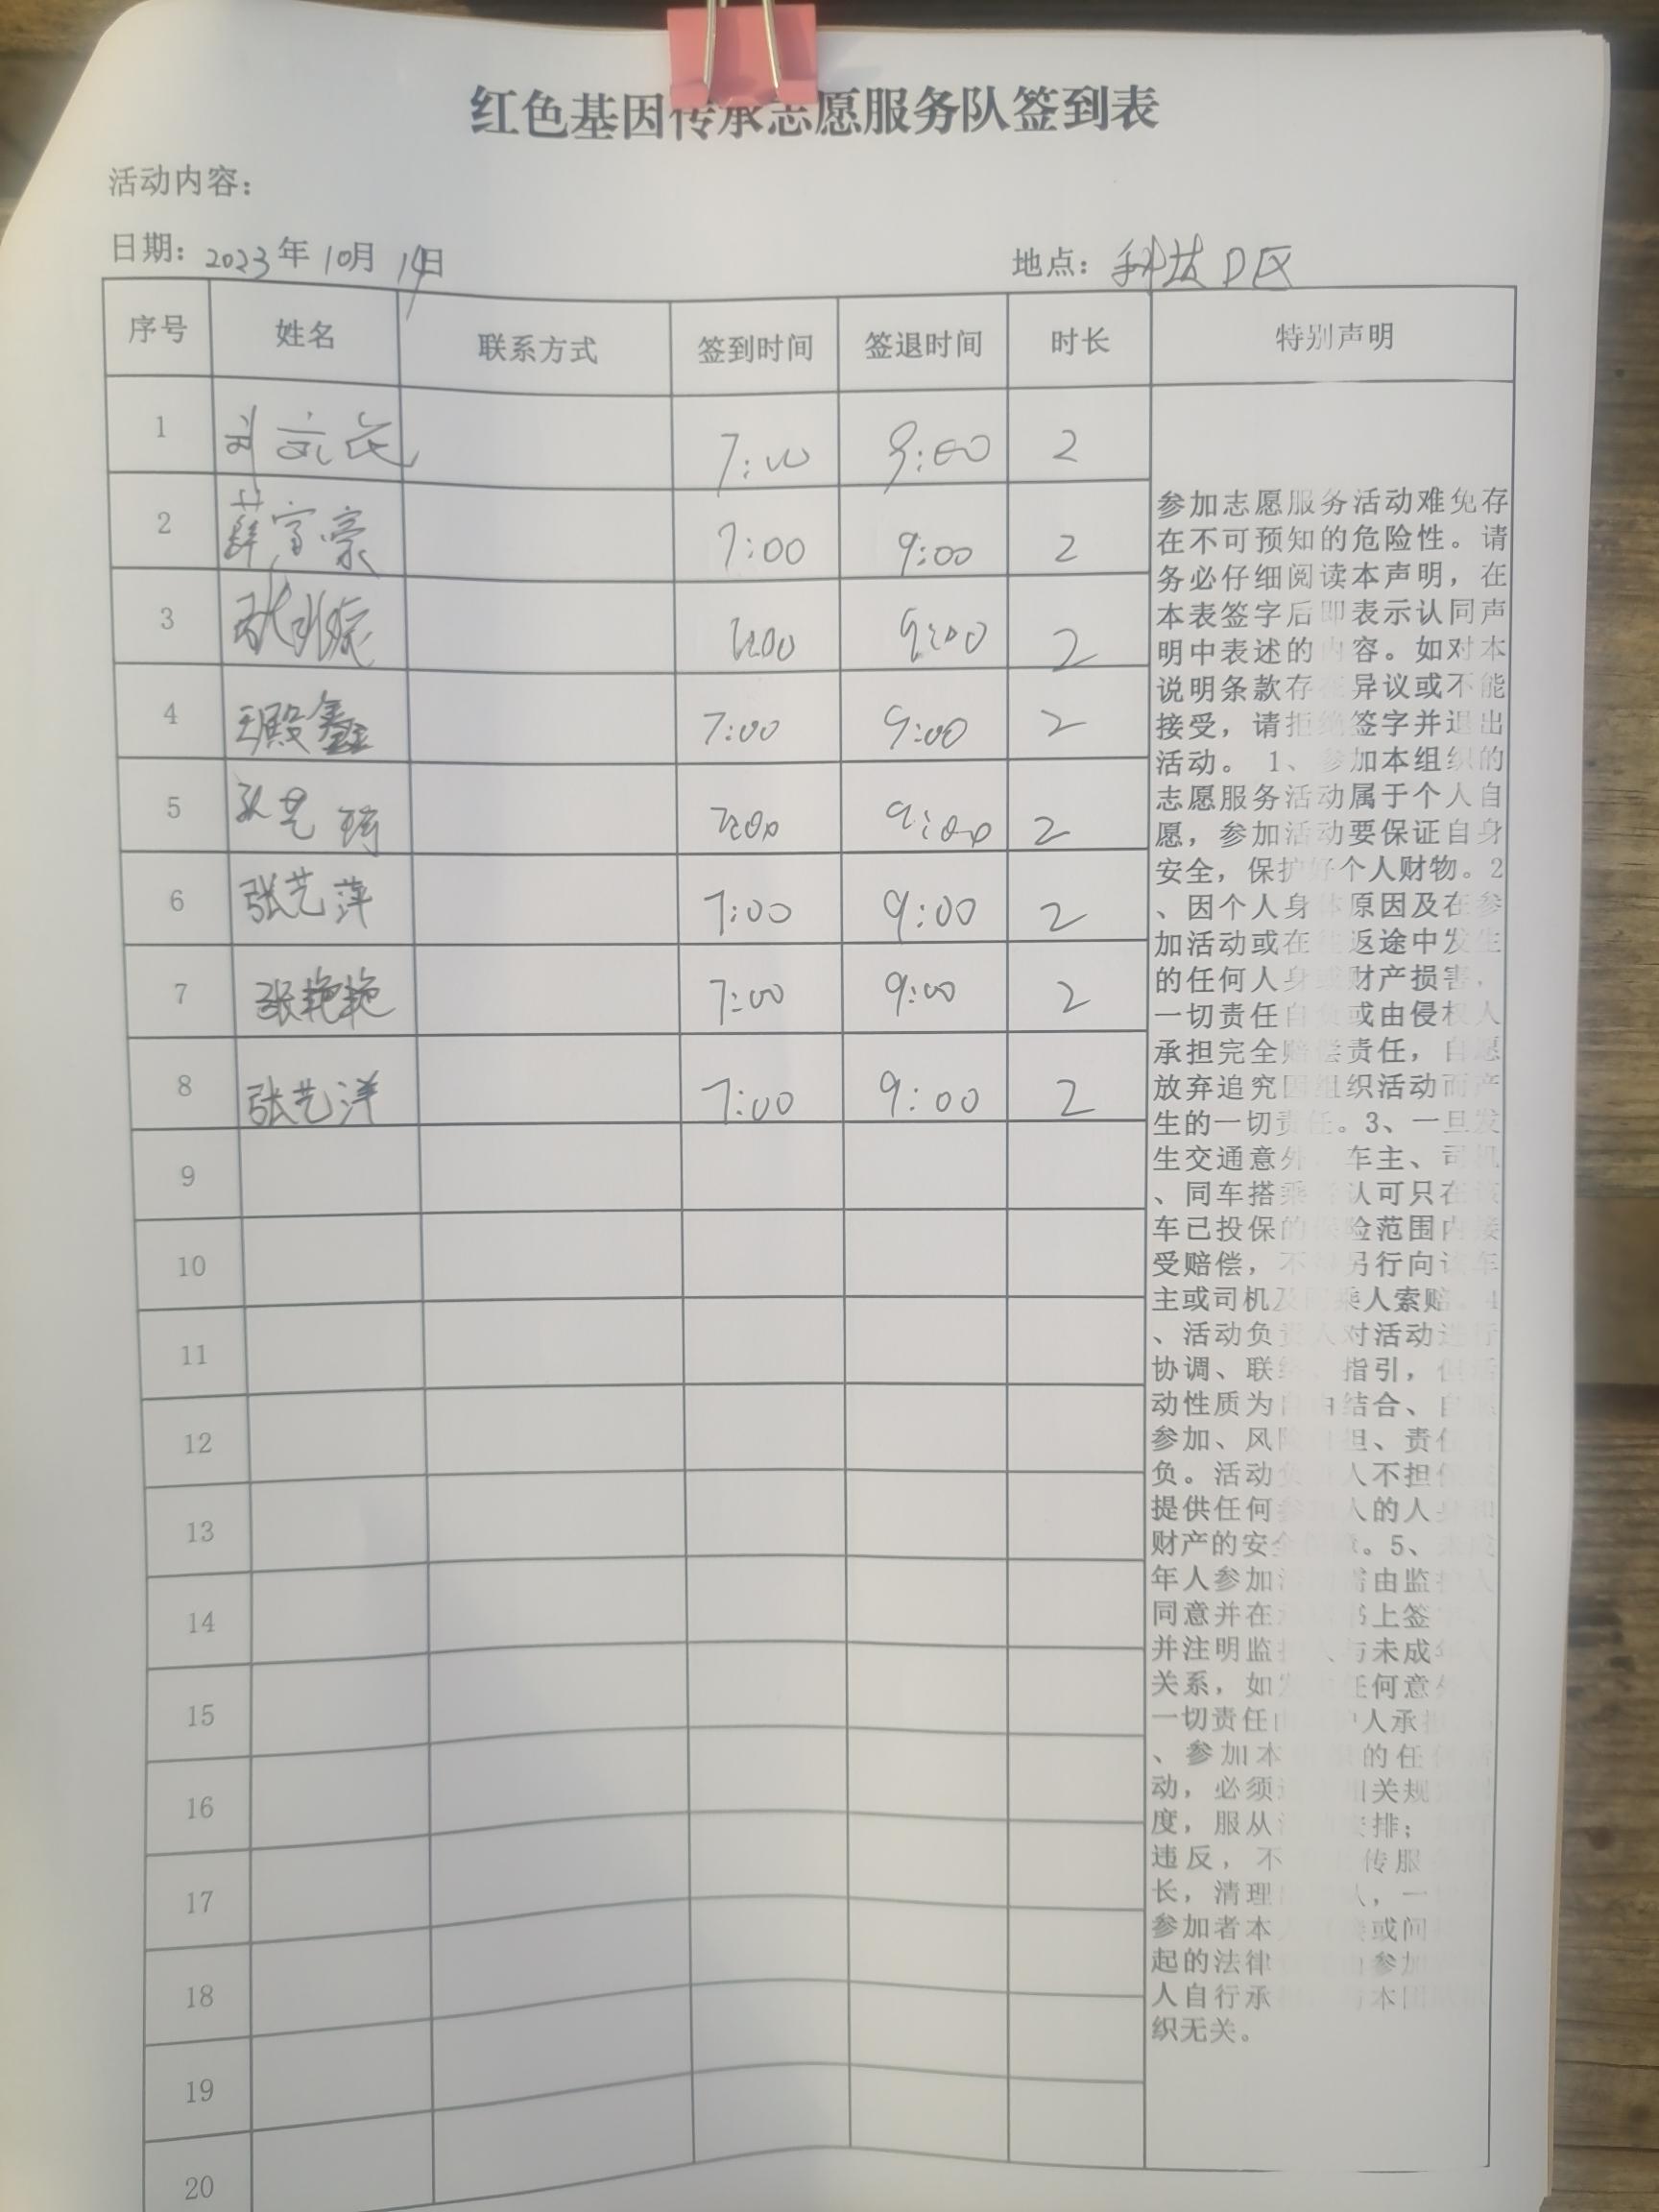 红色基因传承志愿服务队签到表
活动内容：
日期：2023年10月14日 地点：科技D区
序号 姓名 联系方式 签到时间 签退时间 时长 特别声明
1 刘 7:00 9:00 2
2 薛富豪 7:00 9:00 2
3 7:00 9:00 2
4 王殿鑫 7:00 9:00 2
5 7:00 9:00 2
6 张艺萍 7:00 9:00 2
7 张艳艳 7:00 9:00 2
8 张艺洋 7:00 9:00 2
9
10
11
12
13
14
15
16
17
18
19
20
参加志愿服务活动难免存
在不可预知的危险性。请
务必仔细阅读本声明，在
本表签字后即表示认同声
明中表述的内容。如对本
说明条款存在异议或不能
接受，请拒绝签字并退出
活动。1、参加本组织的
志愿服务活动属于个人自
愿，参加活动要保证自身
安全，保护好个人财物。2
、因个人身体原因及在参
加活动或在往返途中发生
的任何人身或财产损害，
一切责任自负或由侵权人
承担完全赔偿责任，自愿
放弃追究因组织活动而产
生的一切责任。3、一旦发
生交通意外，车主、司机
、同车搭乘者认可只在该
车已投保的保险范围内接
受赔偿，不得另行向该车
主或司机及同乘人索赔。4
、活动负责人对活动进行
协调、联络、指引，但活
动性质为自由结合、自愿
参加、风险自担、责任自
负。活动负责人不担保或
提供任何参加人的人身和
财产的安全保障。5、未成
年人参加活动需由监护人
同意并在承诺书上签字，
并注明监护人与未成年人
关系，如发生任何意外，
一切责任由监护人承担
、参加本组织的任何活
动，必须遵守相关规定制
度，服从活动安排；
违反，不 传服
长，清理出队，一
参加者本人 接或间
起的法律 由参加
人自行承 与本团
织无关。